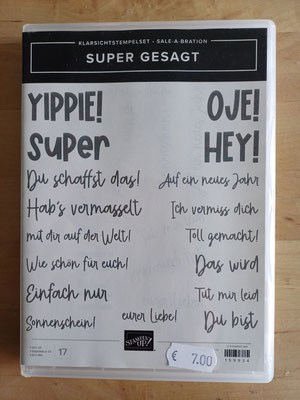 KLARSICHTSTEMPELSET • SALE-A-BRATION
SUPER GESAGT
YIPPIE! OJE!
Super HEY!
Du schaffst das! Auf ein neues Jahr
Hab's vermasselt Ich vermiss dich
mit dir auf der Welt! Toll gemacht!
Wie schön für euch! Das wird
Einfach nur Tut mir leid
Sonnenschein! eurer Liebe! Du bist
17
STAMPIN' UP!
€ 7.00